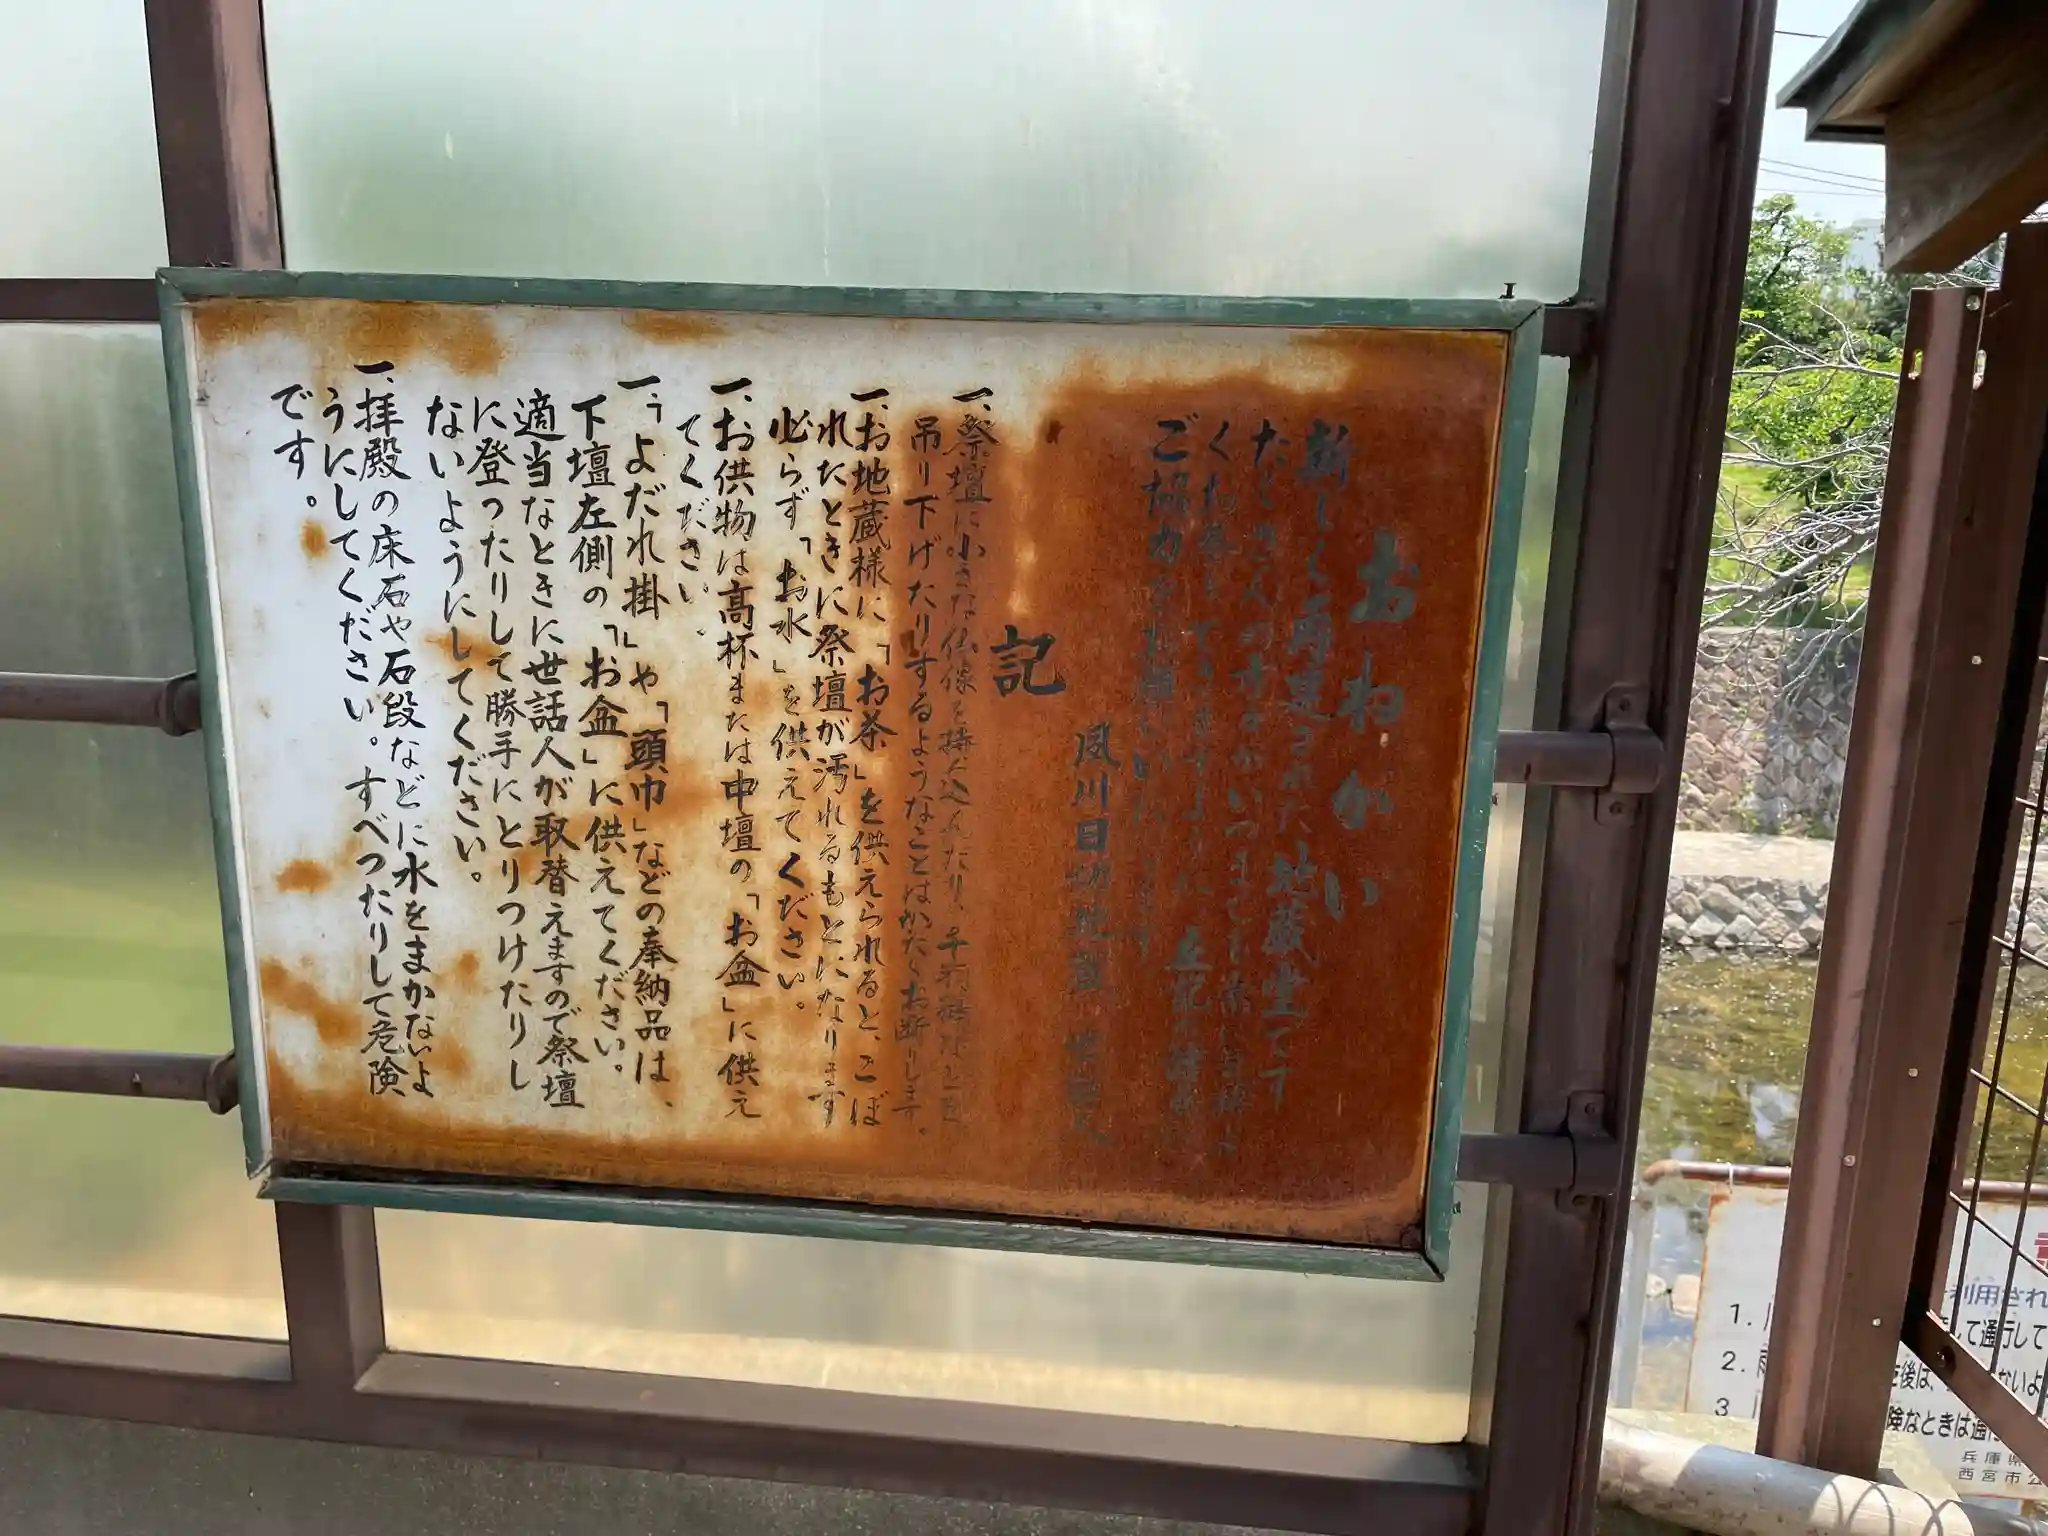 おねがい
新しく再建された地蔵堂です
たくさんの方々がいつまでも
ご協力をお願いいたします
夙川日切地蔵 世話人
記
一、祭壇に小さな仏像を持ち込んだり、千羽鶴などを
吊り下げたりするようなことはかたくお断りします。
一、お地蔵様に「お茶」を供えられると、こぼ
れたときに祭壇が汚れるもとになります
必らず「お水」を供えてください。
一、お供物は高杯または中壇の「お盆」に供え
てください。
一、「よだれ掛」や「頭巾」などの奉納品は、
下壇左側の「お盆」に供えてください。
適当なときに世話人が取替えますので祭壇
に登ったりして勝手にとりつけたりし
ないようにしてください。
一、拝殿の床石や石段などに水をまかないよ
うにしてください。すべったりして危険
です。
利用され
して通行して
1.
2. 雨
後は、
ないよ
3
険なときは通
兵庫県
西宮市